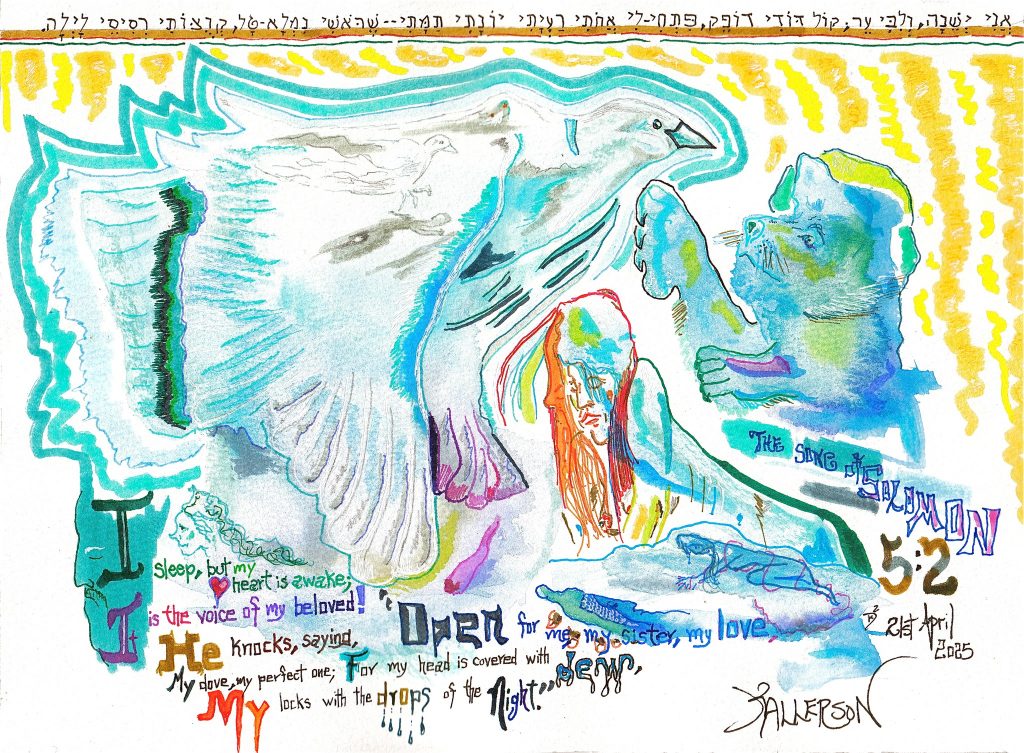 אֲנִי יְשֵׁנָה, וְלִבִּי עֵר; קוֹל דּוֹדִי דוֹפֵק, פִּתְחִי-לִי אֲחֹתִי רַעְיָתִי יוֹנָתִי תַמָּתִי--שֶׁרֹּאשִׁי נִמְלָא-טָל, קְוֻצּוֹתַי רְסִיסֵי לָיְלָה.
THE SONG of SOLOMON
5:2
I sleep, but my
heart is awake;
It is the voice of my beloved!
He knocks, saying, "Open for me, my sister, my love,
My dove, my perfect one; For my head is covered with dew,
My locks with the drops of the Night."
21st April
2025